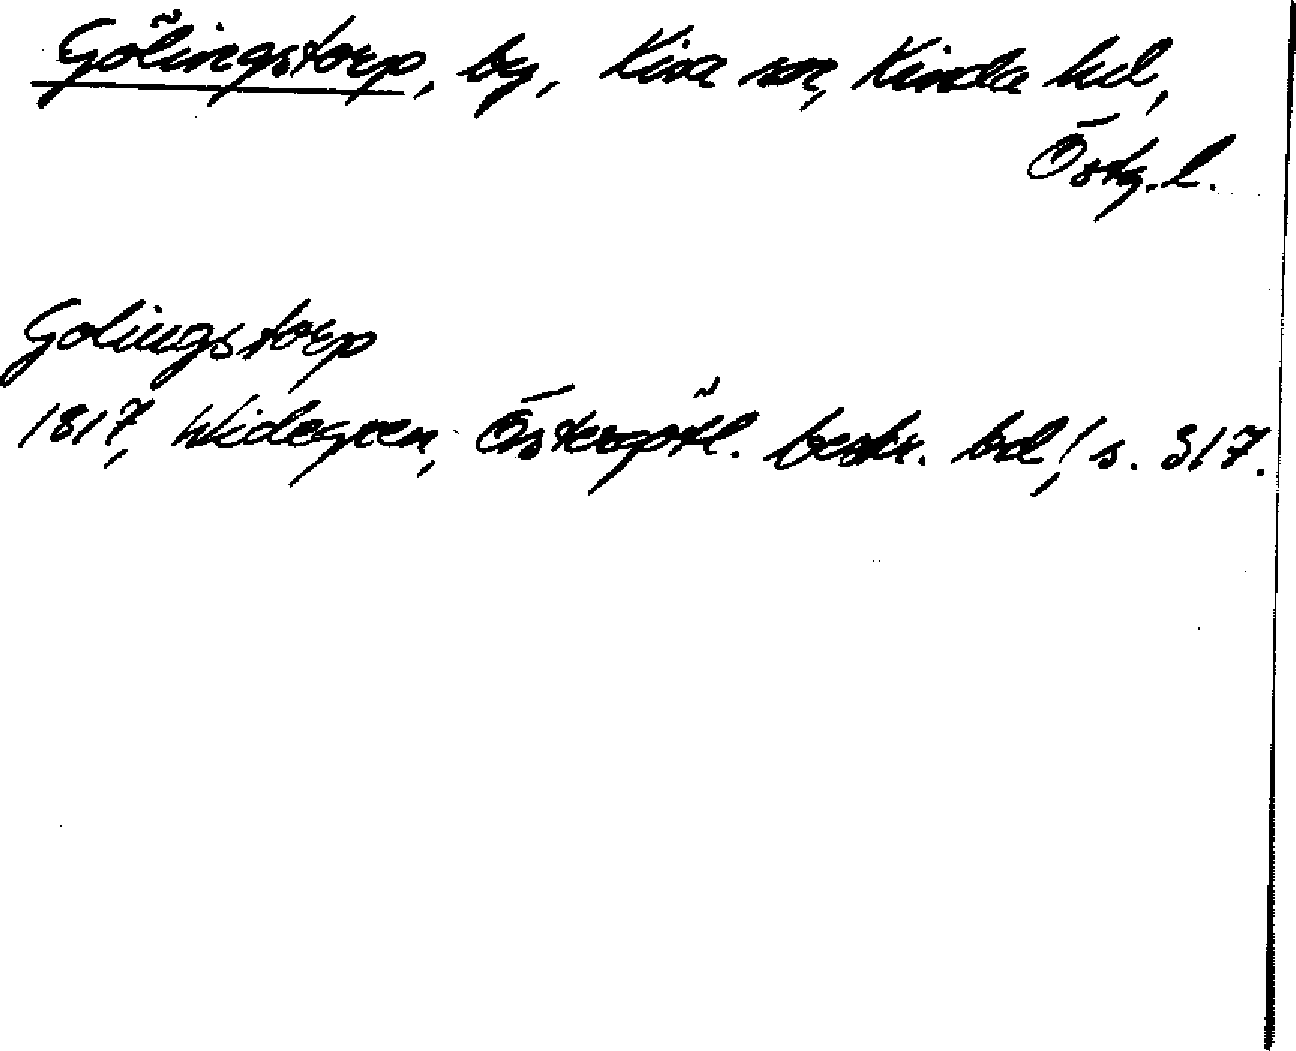 Gölingstorp, by, Kisa sn, Kinda hd,
Östg. l.
Golingstorp
1817, Widegren, Östergötl. beskr. bd 1 s. 317.